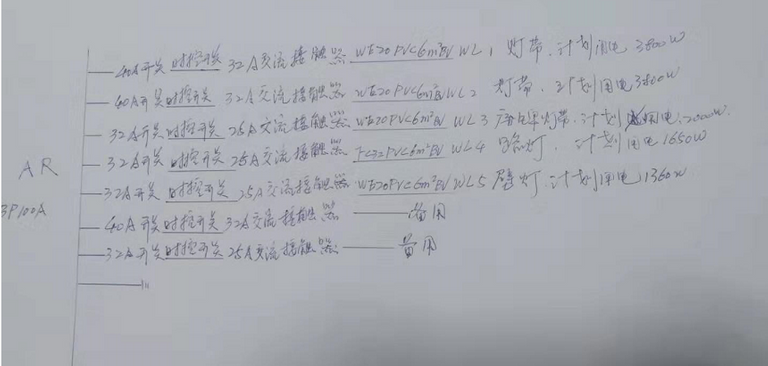 40A开关 时控开关 32A交流接触器 WE20PVC6m²BV WL1 灯带、计划用电3800W
40A开关 时控开关 32A交流接触器 WE20PVC6m²BV WL2 灯带、计划用电3800W
32A开关 时控开关 25A交流接触器 WE20PVC6m²BV WL3 灯带、计划用电2000W
AR
32A开关 时控开关 25A交流接触器 FC32PVC6m²BV WL4 路灯、计划用电1650W
32A开关 时控开关 25A交流接触器 WE20PVC6m²BV WL5 壁灯、计划用电1360W
3P100A
40A开关 时控开关 32A交流接触器 备用
32A开关 时控开关 25A交流接触器 备用